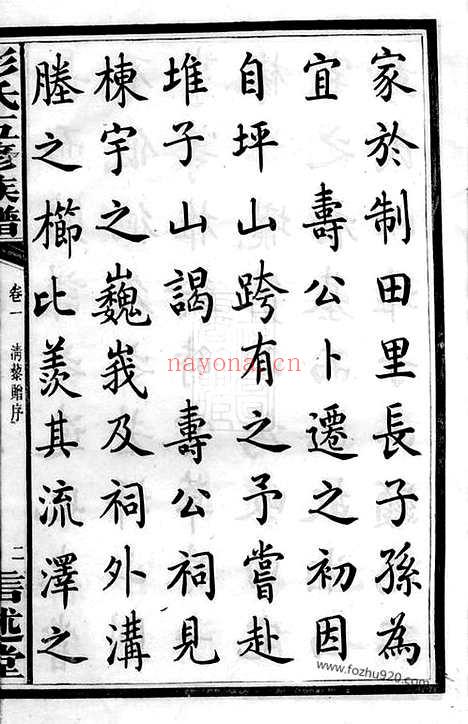 家於制田里長子孫為
宜　壽公卜遷之初因
自坪山跨有之予嘗赴
堆子山謁　壽公祠見
棟宇之巍峩及祠外溝
塍之櫛比羨其流澤之
彭氏五修族譜
卷一　清藜贈序
二
信述堂
nayona.cn
www.fozhu920.com